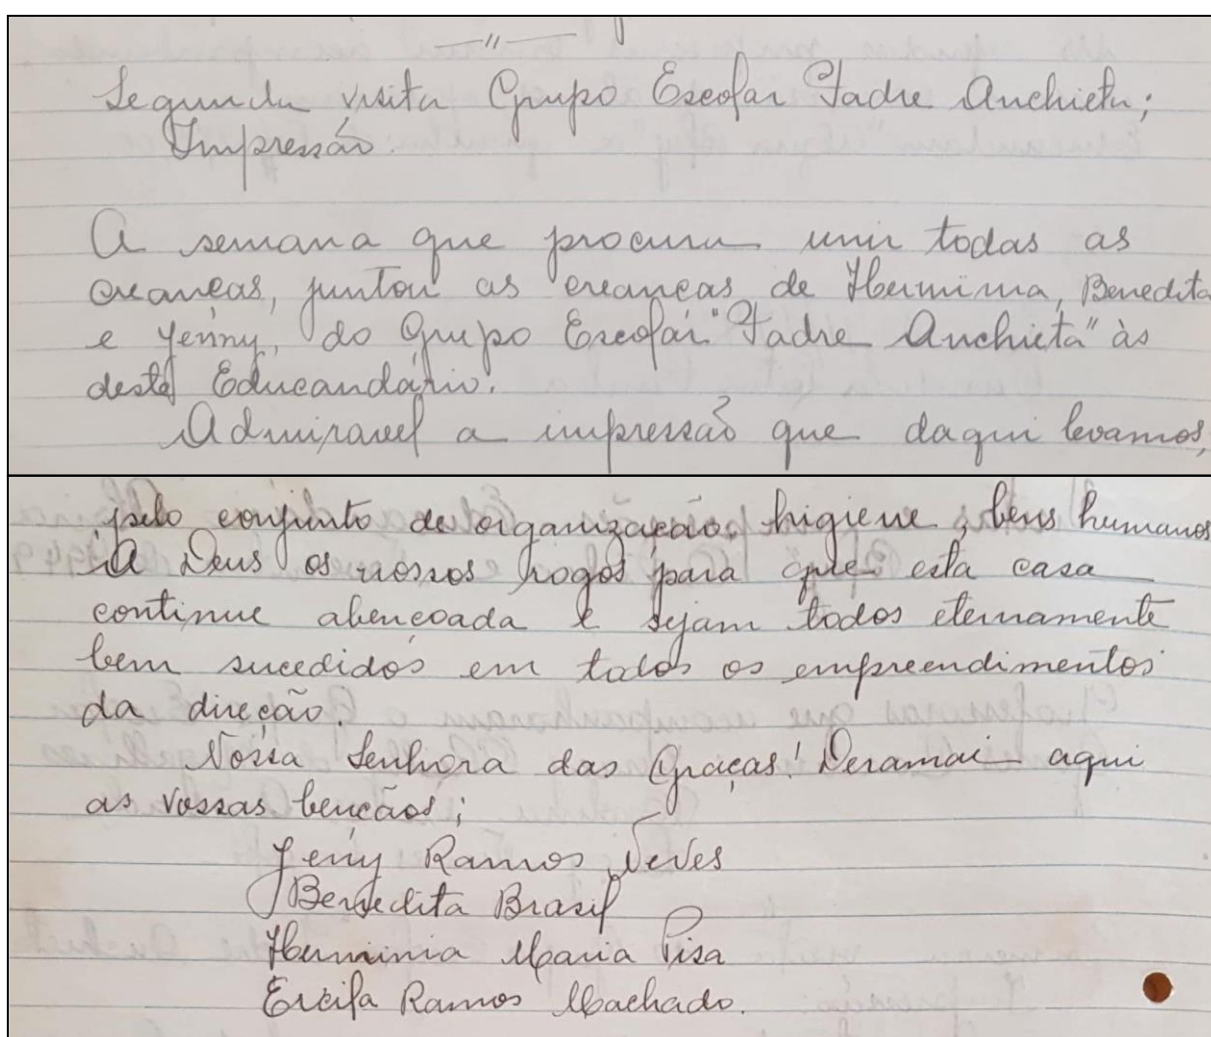 Segunda visita Grupo Escolar Padre Anchieta;
Impressão.
A semana que procura unir todas as
creanças, juntou as creanças de Herminia, Benedita
e Jenny, do Grupo Escolar "Padre Anchieta" às
deste Educandário.
Admiravel a impressão que daqui levamos,
pelo conjunto de organização, higiene, bens humanos
A Deus os nossos rogos para que esta casa
continue abençoada e sejam todos eternamente
bem sucedidos em todos os empreendimentos
da direção.
Nossa Senhora das Graças! Deramai aqui
as vossas bençãos;
Jeny Ramos Neves
Benedita Brasil
Herminia Maria Pisa
Ercila Ramos Machado.